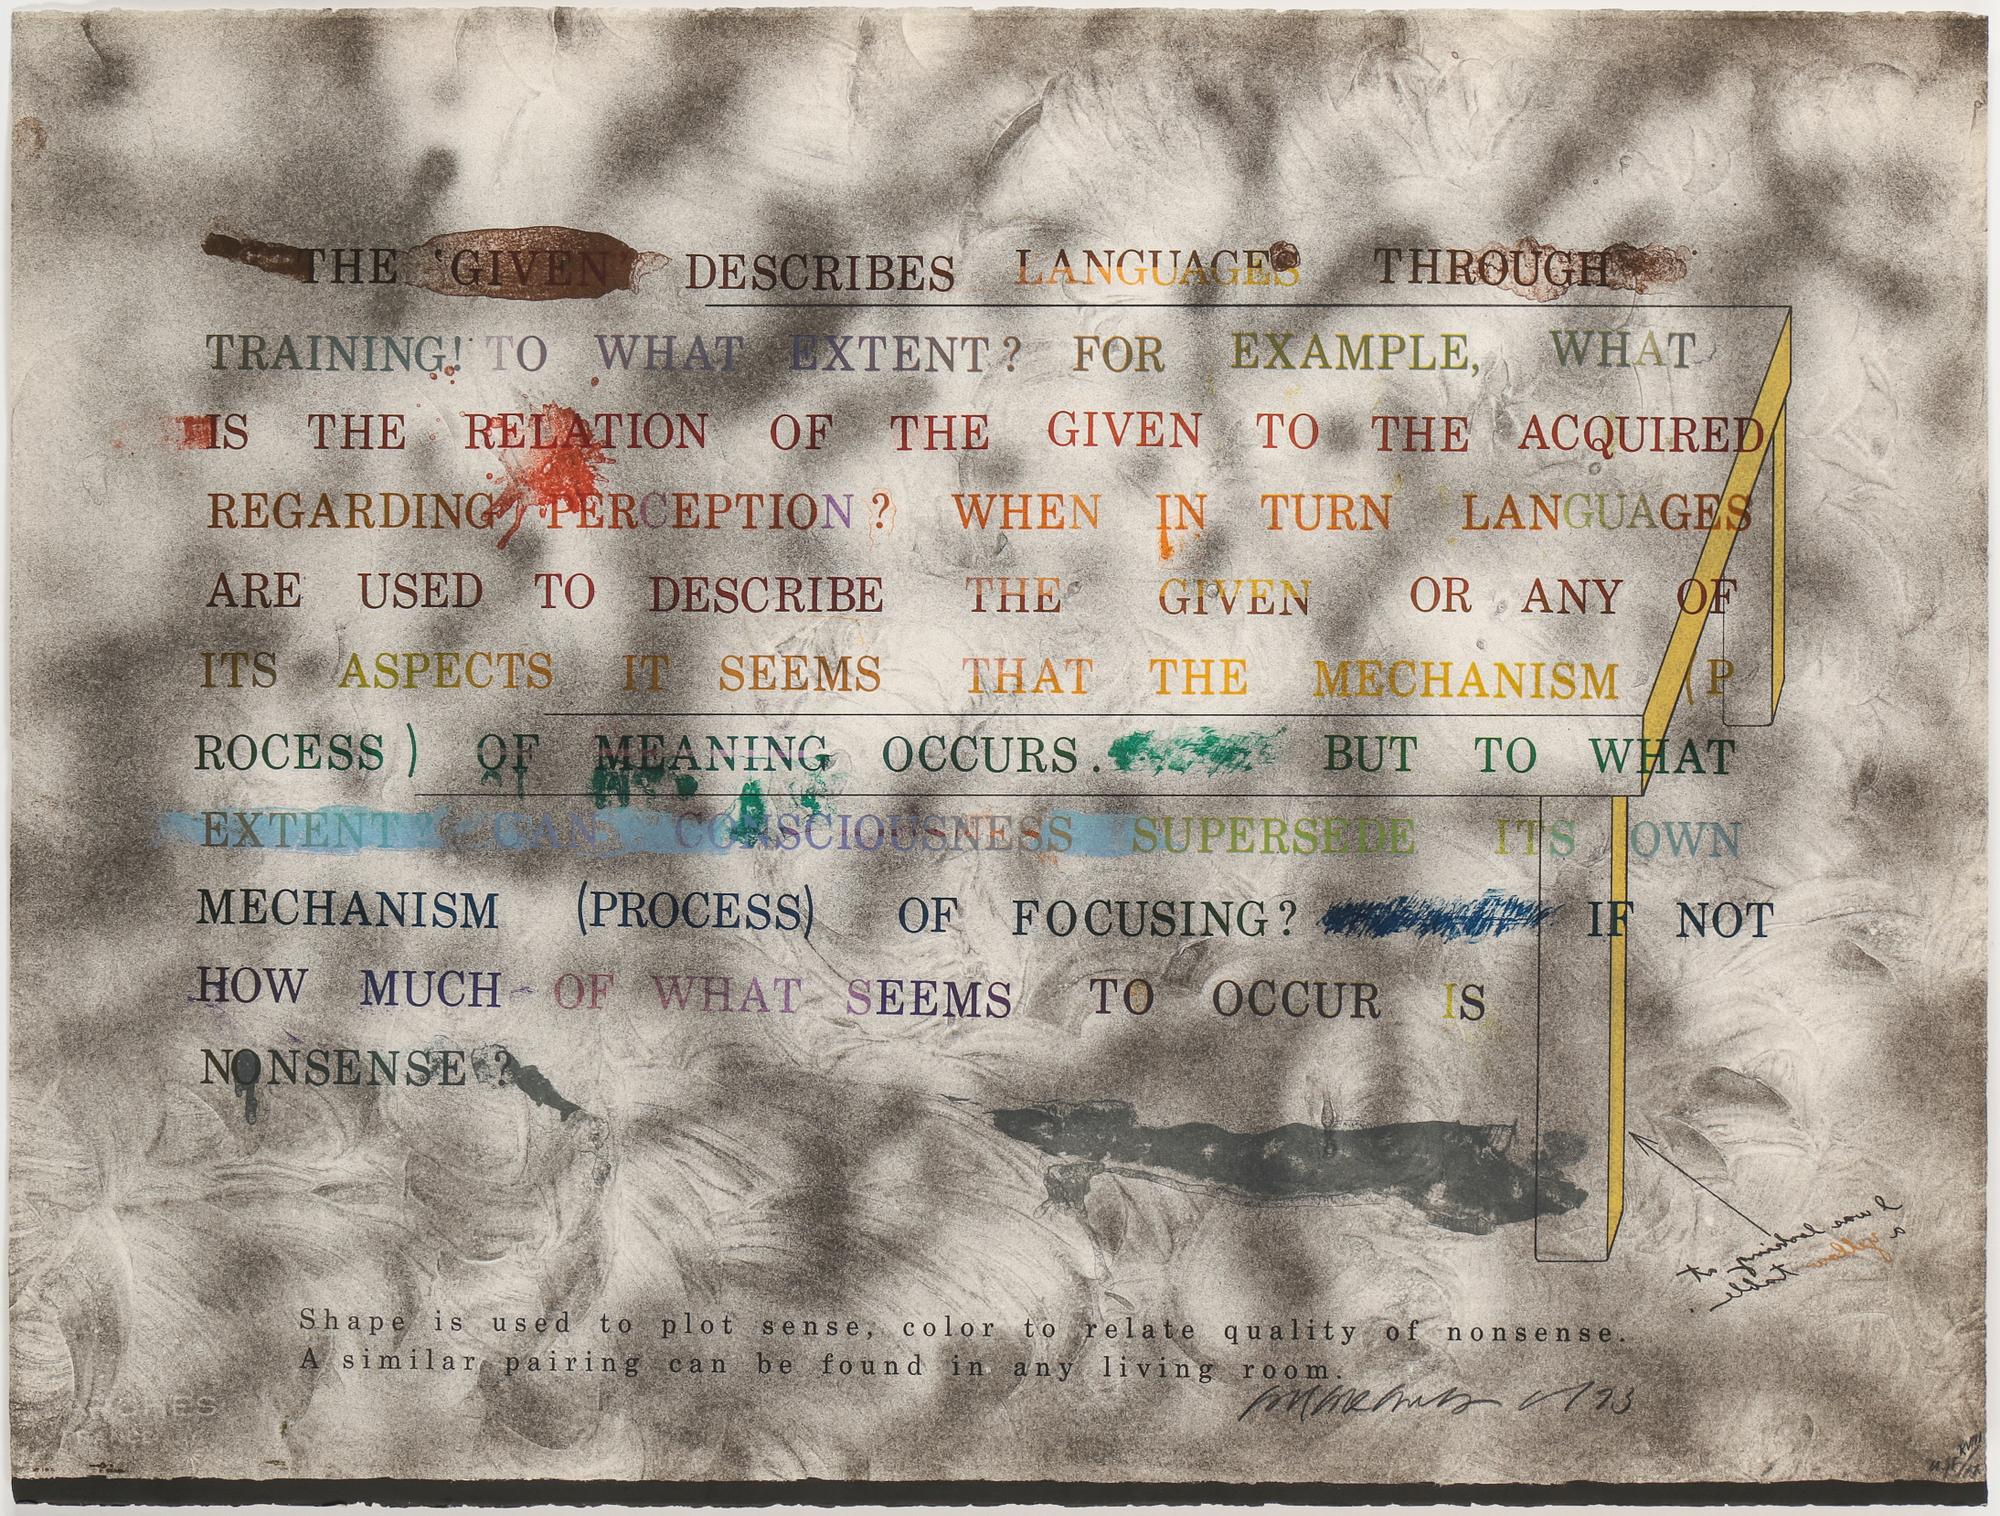 THE 'GIVEN DESCRIBES LANGUAGES THROUGH
TRAINING! TO WHAT EXTENT? FOR EXAMPLE, WHAT
IS THE RELATION OF THE GIVEN TO THE ACQUIRED
REGARDING PERCEPTION? WHEN IN TURN LANGUAGES
ARE USED TO DESCRIBE THE GIVEN OR ANY OF
ITS ASPECTS IT SEEMS THAT THE MECHANISM (P
ROCESS) OF MEANING OCCURS. BUT TO WHAT
EXTENT? CAN CONSCIOUSNESS SUPERSEDE ITS OWN
MECHANISM (PROCESS) OF FOCUSING? IF NOT
HOW MUCH OF WHAT SEEMS TO OCCUR IS
NONSENSE?
I was looking at
a yellow table.
Shape is used to plot sense, color to relate quality of nonsense.
A similar pairing can be found in any living room.
73
ARCHES
FRANCE